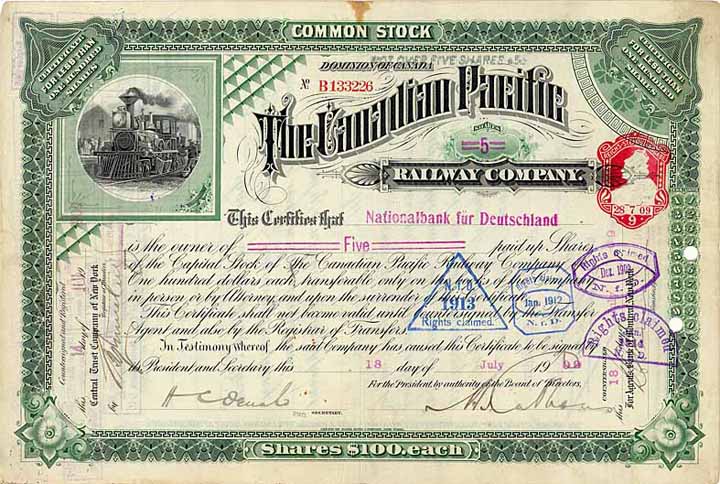 COMMON STOCK
CERTIFICATE
FOR LESS THAN
ONE HUNDRED
SHARES
CERTIFICATE
FOR LESS THAN
ONE HUNDRED
SHARES
NOT OVER FIVE SHARES
DOMINION OF CANADA
No B133226
The Canadian Pacific
SHARES
5
RAILWAY COMPANY.
28 7 09
9
This Certifies that Nationalbank für Deutschland
is the owner of Five paid up Shares
of the Capital Stock of The Canadian Pacific Railway Company
One hundred dollars each transferable only on the books of the Company
in person or by Attorney, and upon the surrender
This Certificate shall not become valid until countersigned by the Transfer
Agent and also by the Registrar of Transfers.
In Testimony Whereof the said Company has caused this Certificate to be signed
the President and Secretary this 18 day of July 1909
For the President, by authority of the Board of Directors,
SECRETARY.
N.f.D.
1913
Rights claimed.
Jan. 1912
N.f.D.
Rights claimed
Dez. 1909
N. f. D.
Rights claimed
Countersigned and Registered
this day of
Central Trust Company of New York
by
COUNTERSIGNED
this 18
Shares $100. each